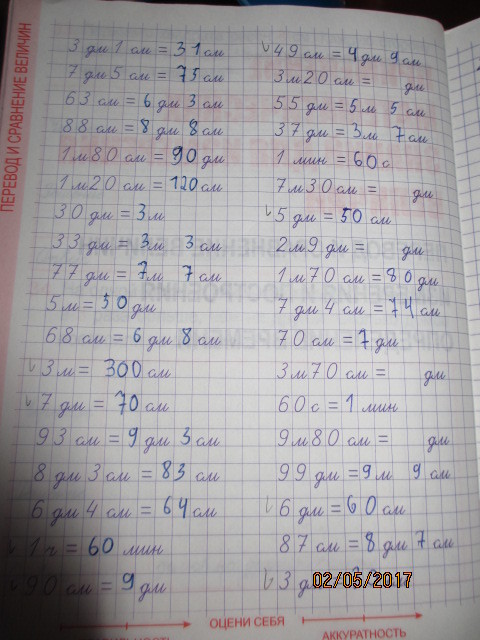 ПЕРЕВОД И СРАВНЕНИЕ ВЕЛИЧИН
3 дм 1 см = 31 см
7 дм 5 см = 75 см
63 см = 6 дм 3 см
88 см = 8 дм 8 см
1 м 80 см = 90 дм
1 м 20 см = 120 см
30 дм = 3 м
33 дм = 3 м 3 см
77 дм = 7 м 7 см
5 м = 50 дм
68 см = 6 дм 8 см
3 м = 300 см
7 дм = 70 см
93 см = 9 дм 3 см
8 дм 3 см = 83 см
6 дм 4 см = 64 см
1 ч = 60 мин
90 см = 9 дм
49 см = 4 дм 9 см
3 м 20 см = дм
55 дм = 5 м 5 см
37 дм = 3 м 7 см
1 мин = 60 с
7 м 30 см = дм
5 дм = 50 см
2 м 9 дм = дм
1 м 70 см = 80 дм
7 дм 4 см = 74 см
70 см = 7 дм
3 м 70 см = дм
60 с = 1 мин
9 м 80 см = дм
99 дм = 9 м 9 см
6 дм = 60 см
87 см = 8 дм 7 см
3 дм
02/05/2017
ОЦЕНИ СЕБЯ
АККУРАТНОСТЬ